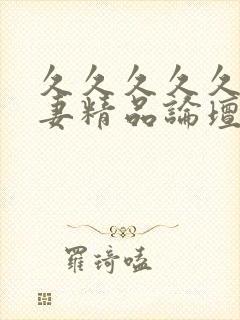 久久久久久
妻精品論壇
羅琦嗑